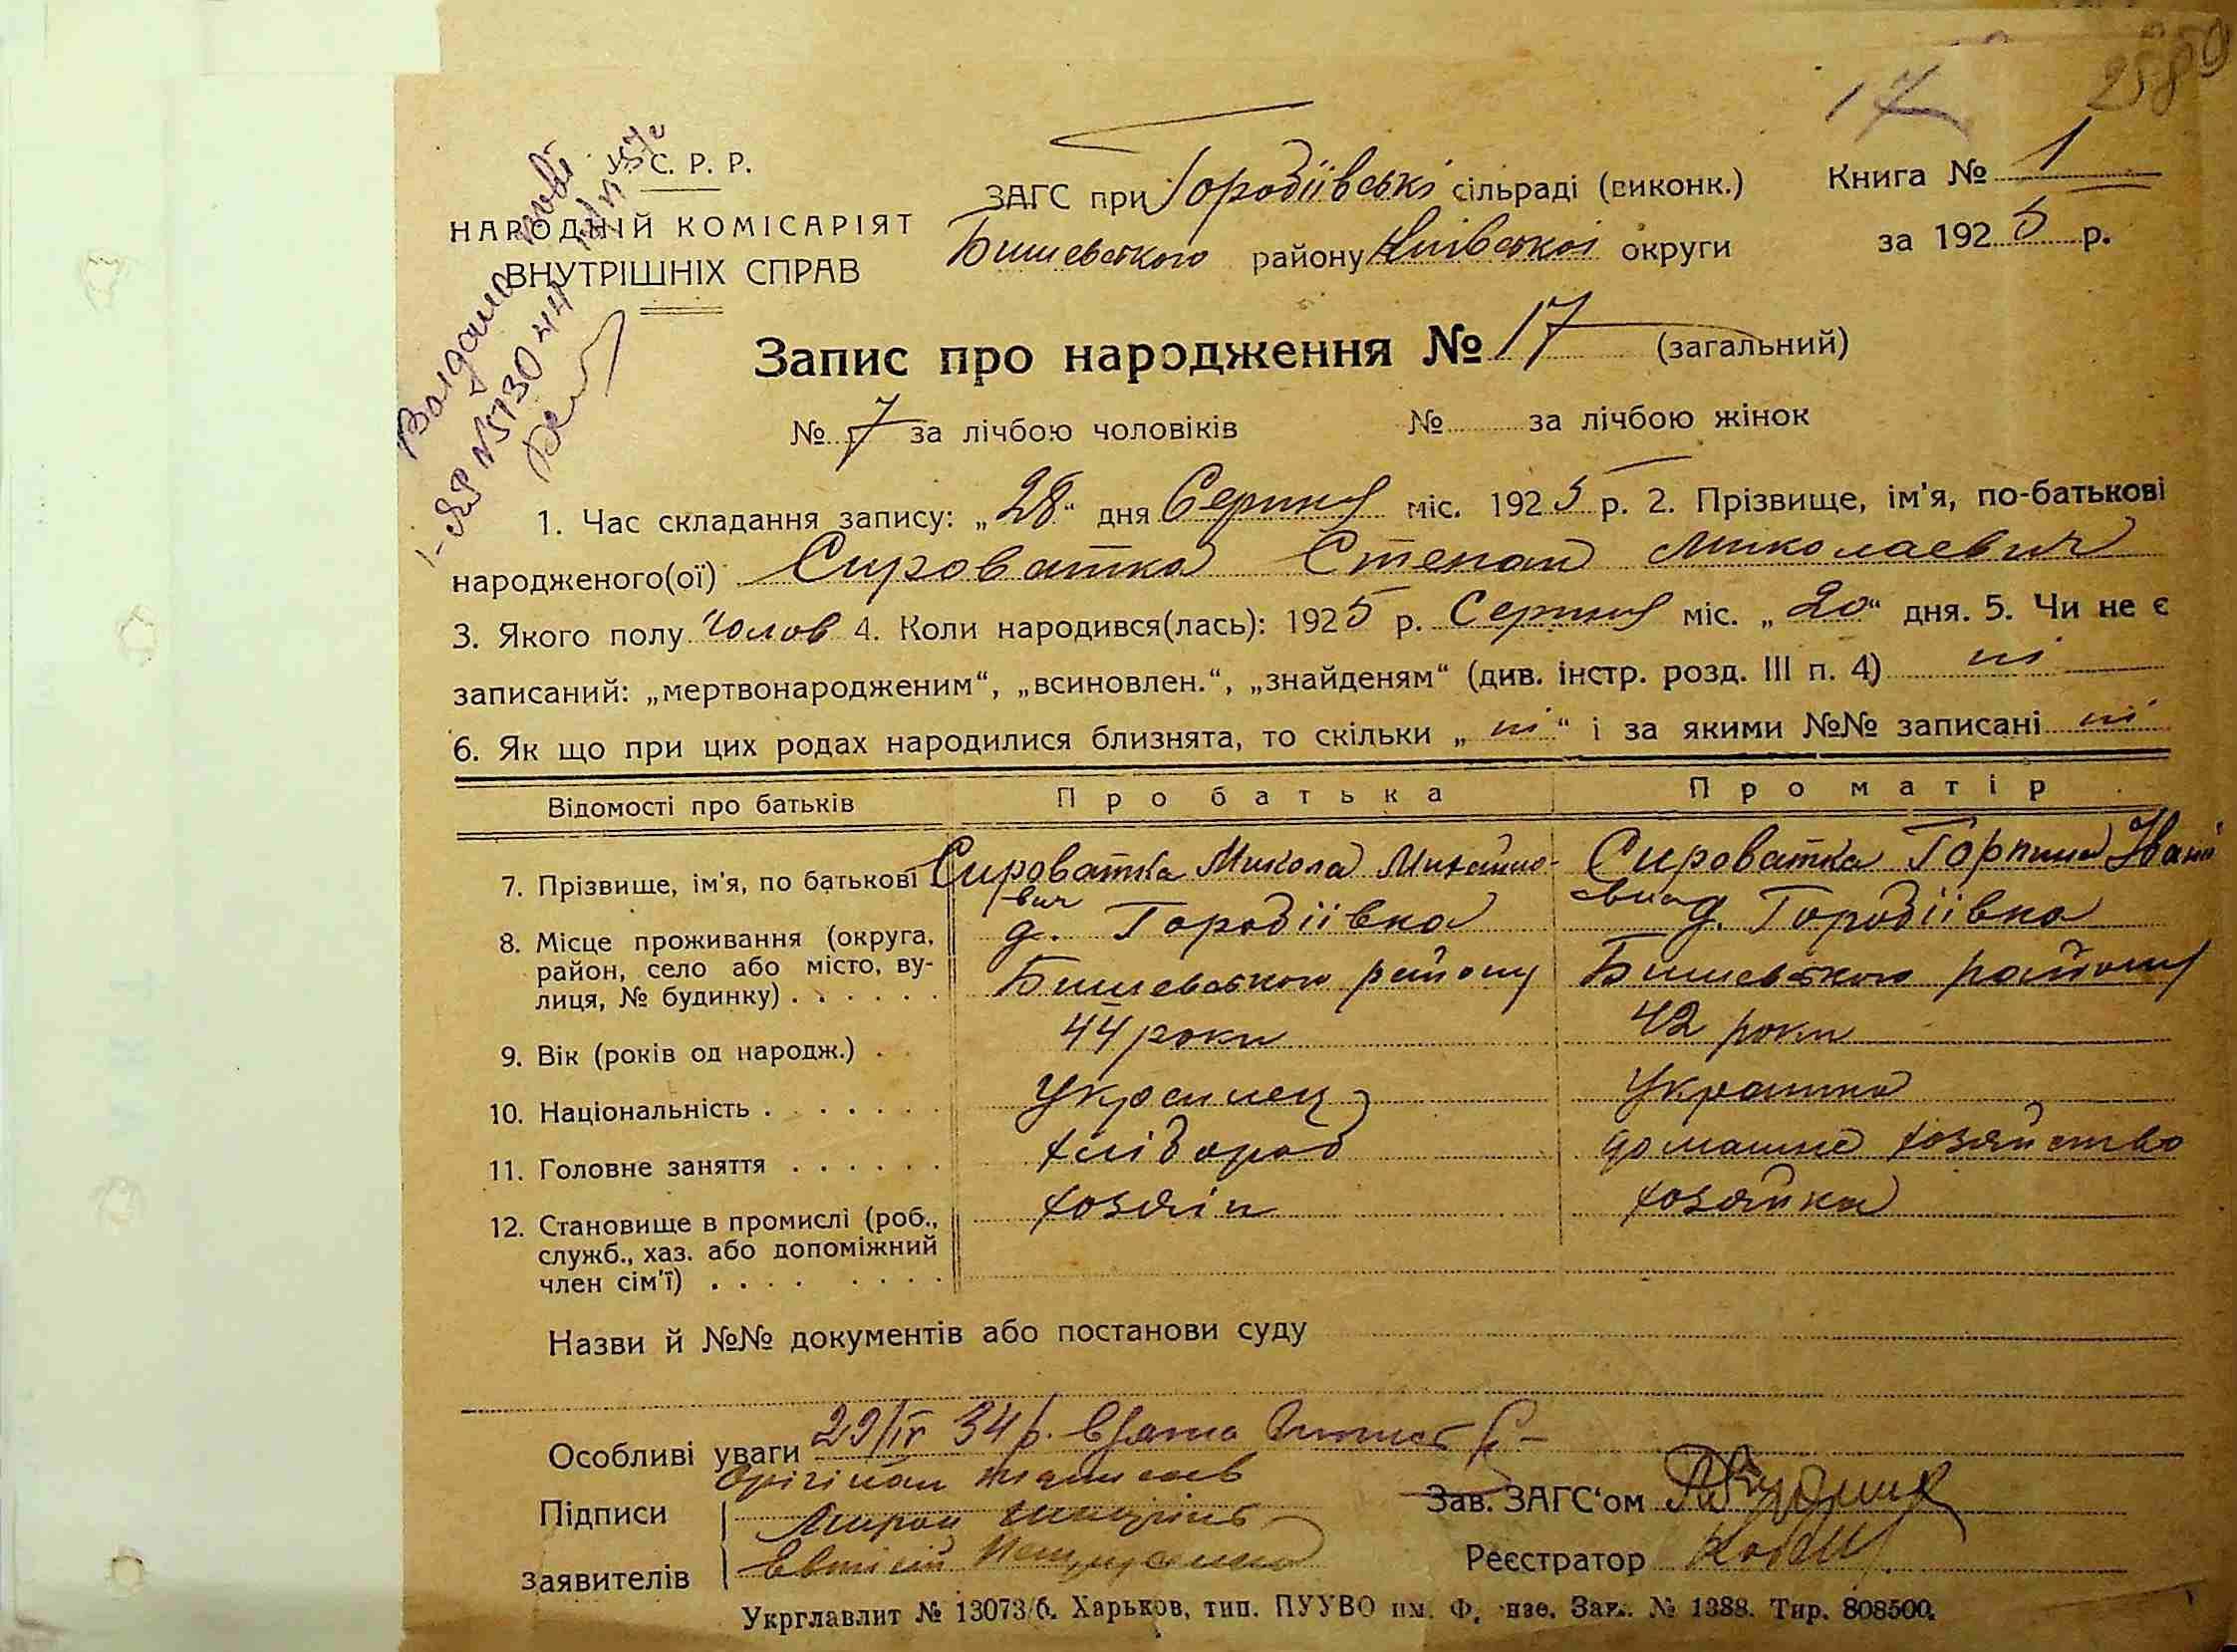 17
2580
У. С. Р. Р.
НАРОДНІЙ КОМІСАРІЯТ
ВНУТРІШНІХ СПРАВ
ЗАГС при Городіівські сільраді (виконк.)
Бишевського району Київської округи
Книга № 1
за 1925 р.
Запис про народження № 17 (загальний)
№ 7 за лічбою чоловіків № за лічбою жінок
1. Час складання запису: „28" дня Серпня міс. 1925 р. 2. Прізвище, ім'я, по-батькові
народженого(ої) Сироватка Степан Миколаевич
3. Якого полу Чолов 4. Коли народився(лась): 1925 р. Серпня міс. „20" дня. 5. Чи не є
записаний: „мертвонародженим", „всиновлен.", „знайденям" (див. інстр. розд. III п. 4) ні
6. Як що при цих родах народилися близнята, то скільки „ні" і за якими №№ записані ні
Відомості про батьків Про батька Про матір
7. Прізвище, ім'я, по батькові Сироватка Микола Михайло-
вич
Сироватка Горпина Івані
вна
8. Місце проживання (округа, район, село або місто, ву-
лиця, № будинку)
д. Городіівка
Бишевського району
д. Городіівка
Бишевского району
9. Вік (років од народж.) 44 роки 42 роки
10. Національність Украинец Украинка
11. Головне заняття хлібороб домашне хозяйство
12. Становище в промислі (роб.,
служб., хаз. або допоміжний
член сім'ї)
хозяін хозяйка
Назви й №№ документів або постанови суду
Особливі уваги 29/IV 34 р.
Орігінал підписав
Підписи
заявителів
Мирон
Евтіхій
Зав. ЗАГС'ом
Реєстратор
Укрглавлит № 13073/б. Харьков, тип. ПУУВО им. Ф. Зак. № 1388. Тир. 808500.